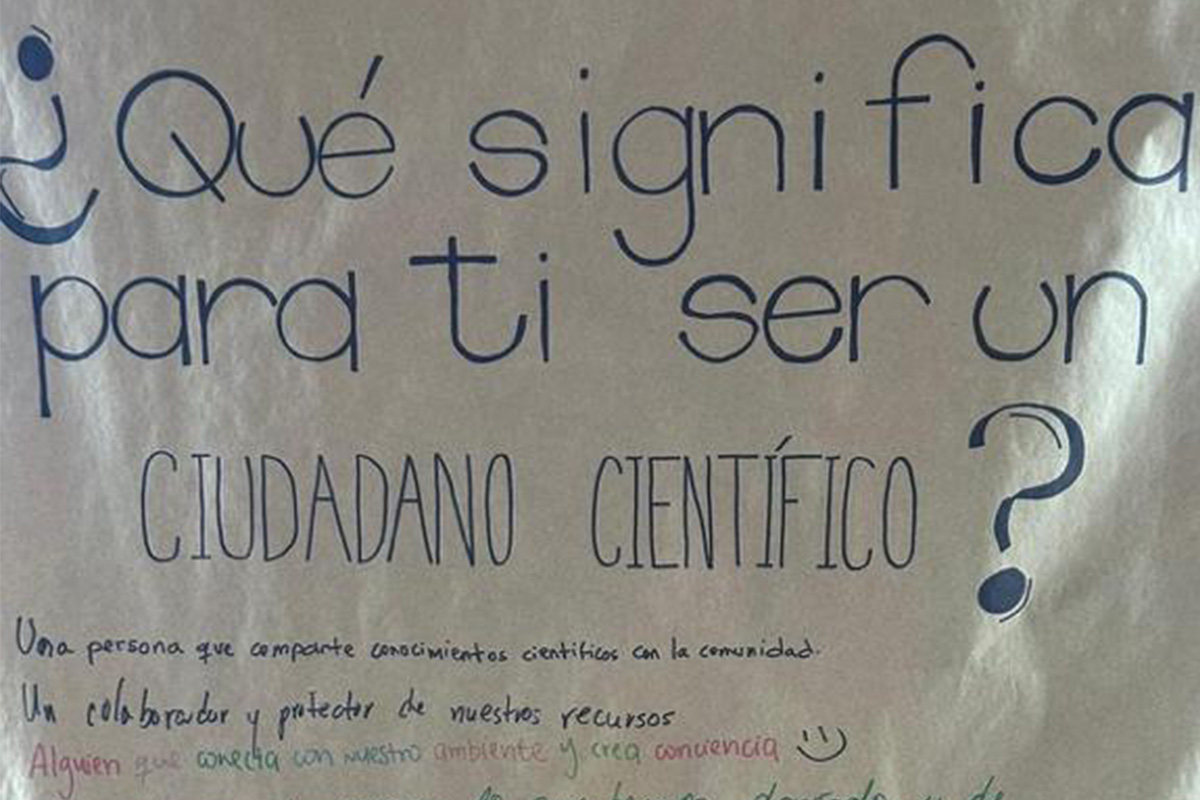 ¿Qué significa
para ti ser un
CIUDADANO CIENTÍFICO?
Una persona que comparte conocimientos cientificos con la comunidad.
Un colaborador y protector de nuestros recursos
Alguien que conecta con nuestro ambiente y crea conciencia